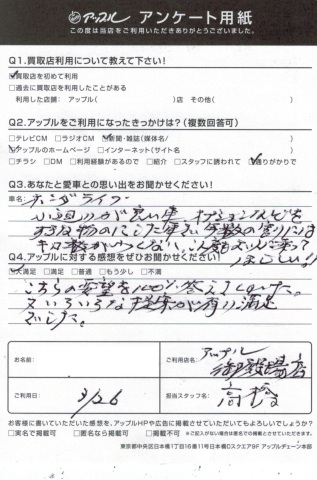 アップル アンケート用紙
この度は当店をご利用いただきありがとうございました。
Q1.買取店利用について教えて下さい!
☑買取店を初めて利用
□過去に買取店を利用したことがある
利用した店舗: アップル( )店 その他( )
Q2.アップルをご利用になったきっかけは?(複数回答可)
□テレビCM □ラジオCM ☑新聞・雑誌(媒体名/ )
☑アップルのホームページ □インターネット(サイト名 )
□チラシ □DM □利用経験があるので □紹介 □スタッフに誘われて ☑通りがかりで
Q3.あなたと愛車との思い出をお聞かせください!
車名: ホンダライフ
小回りが良い車
Q4.アップルに対する感想をぜひお聞かせください!
☑大満足 □満足 □普通 □もう少し □不満
こちらの要望を100%答えて
又いろいろな提案が有り満足
でした。
お名前:
ご利用店名: アップル
御殿場店
ご利用日: 3/26
担当スタッフ名: 高
お客様に書いていただいた感想を、アップルHPや広告に掲載させていただいてもよろしいでしょうか?
□実名で掲載可 □匿名なら掲載可 □掲載不可 ※ご記入がない場合は匿名での掲載とさせていただきます。
東京都中央区日本橋1丁目16番11号日本橋Dスクエア8F アップルチェーン本部